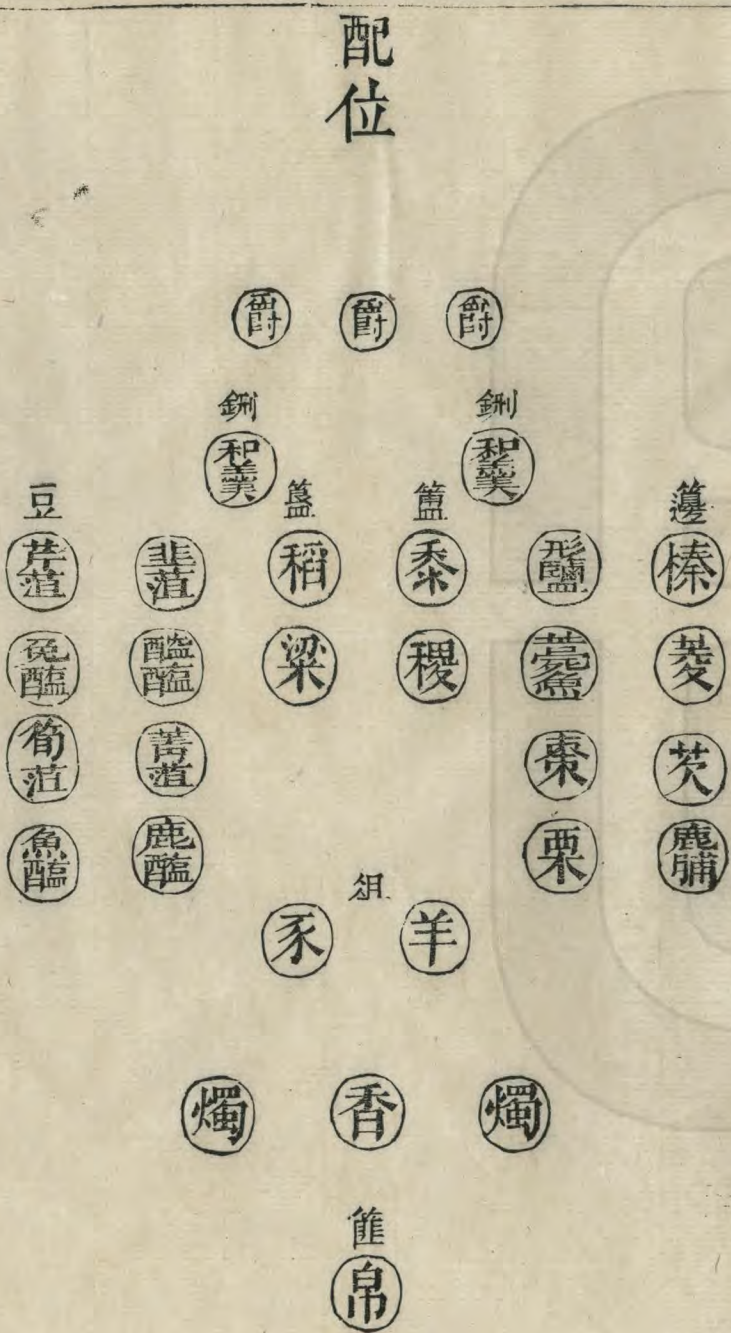 配位
爵 爵 爵
鉶 鉶
和羹 和羹
豆 簠 簋 籩
芹菹 韭菹 稻 黍 形鹽 榛
兔醢 醓醢 粱 稷 薧魚 菱
筍菹 菁菹 棗 芡
魚醢 鹿醢 栗 鹿脯
俎
豕 羊
燭 香 燭
篚
帛